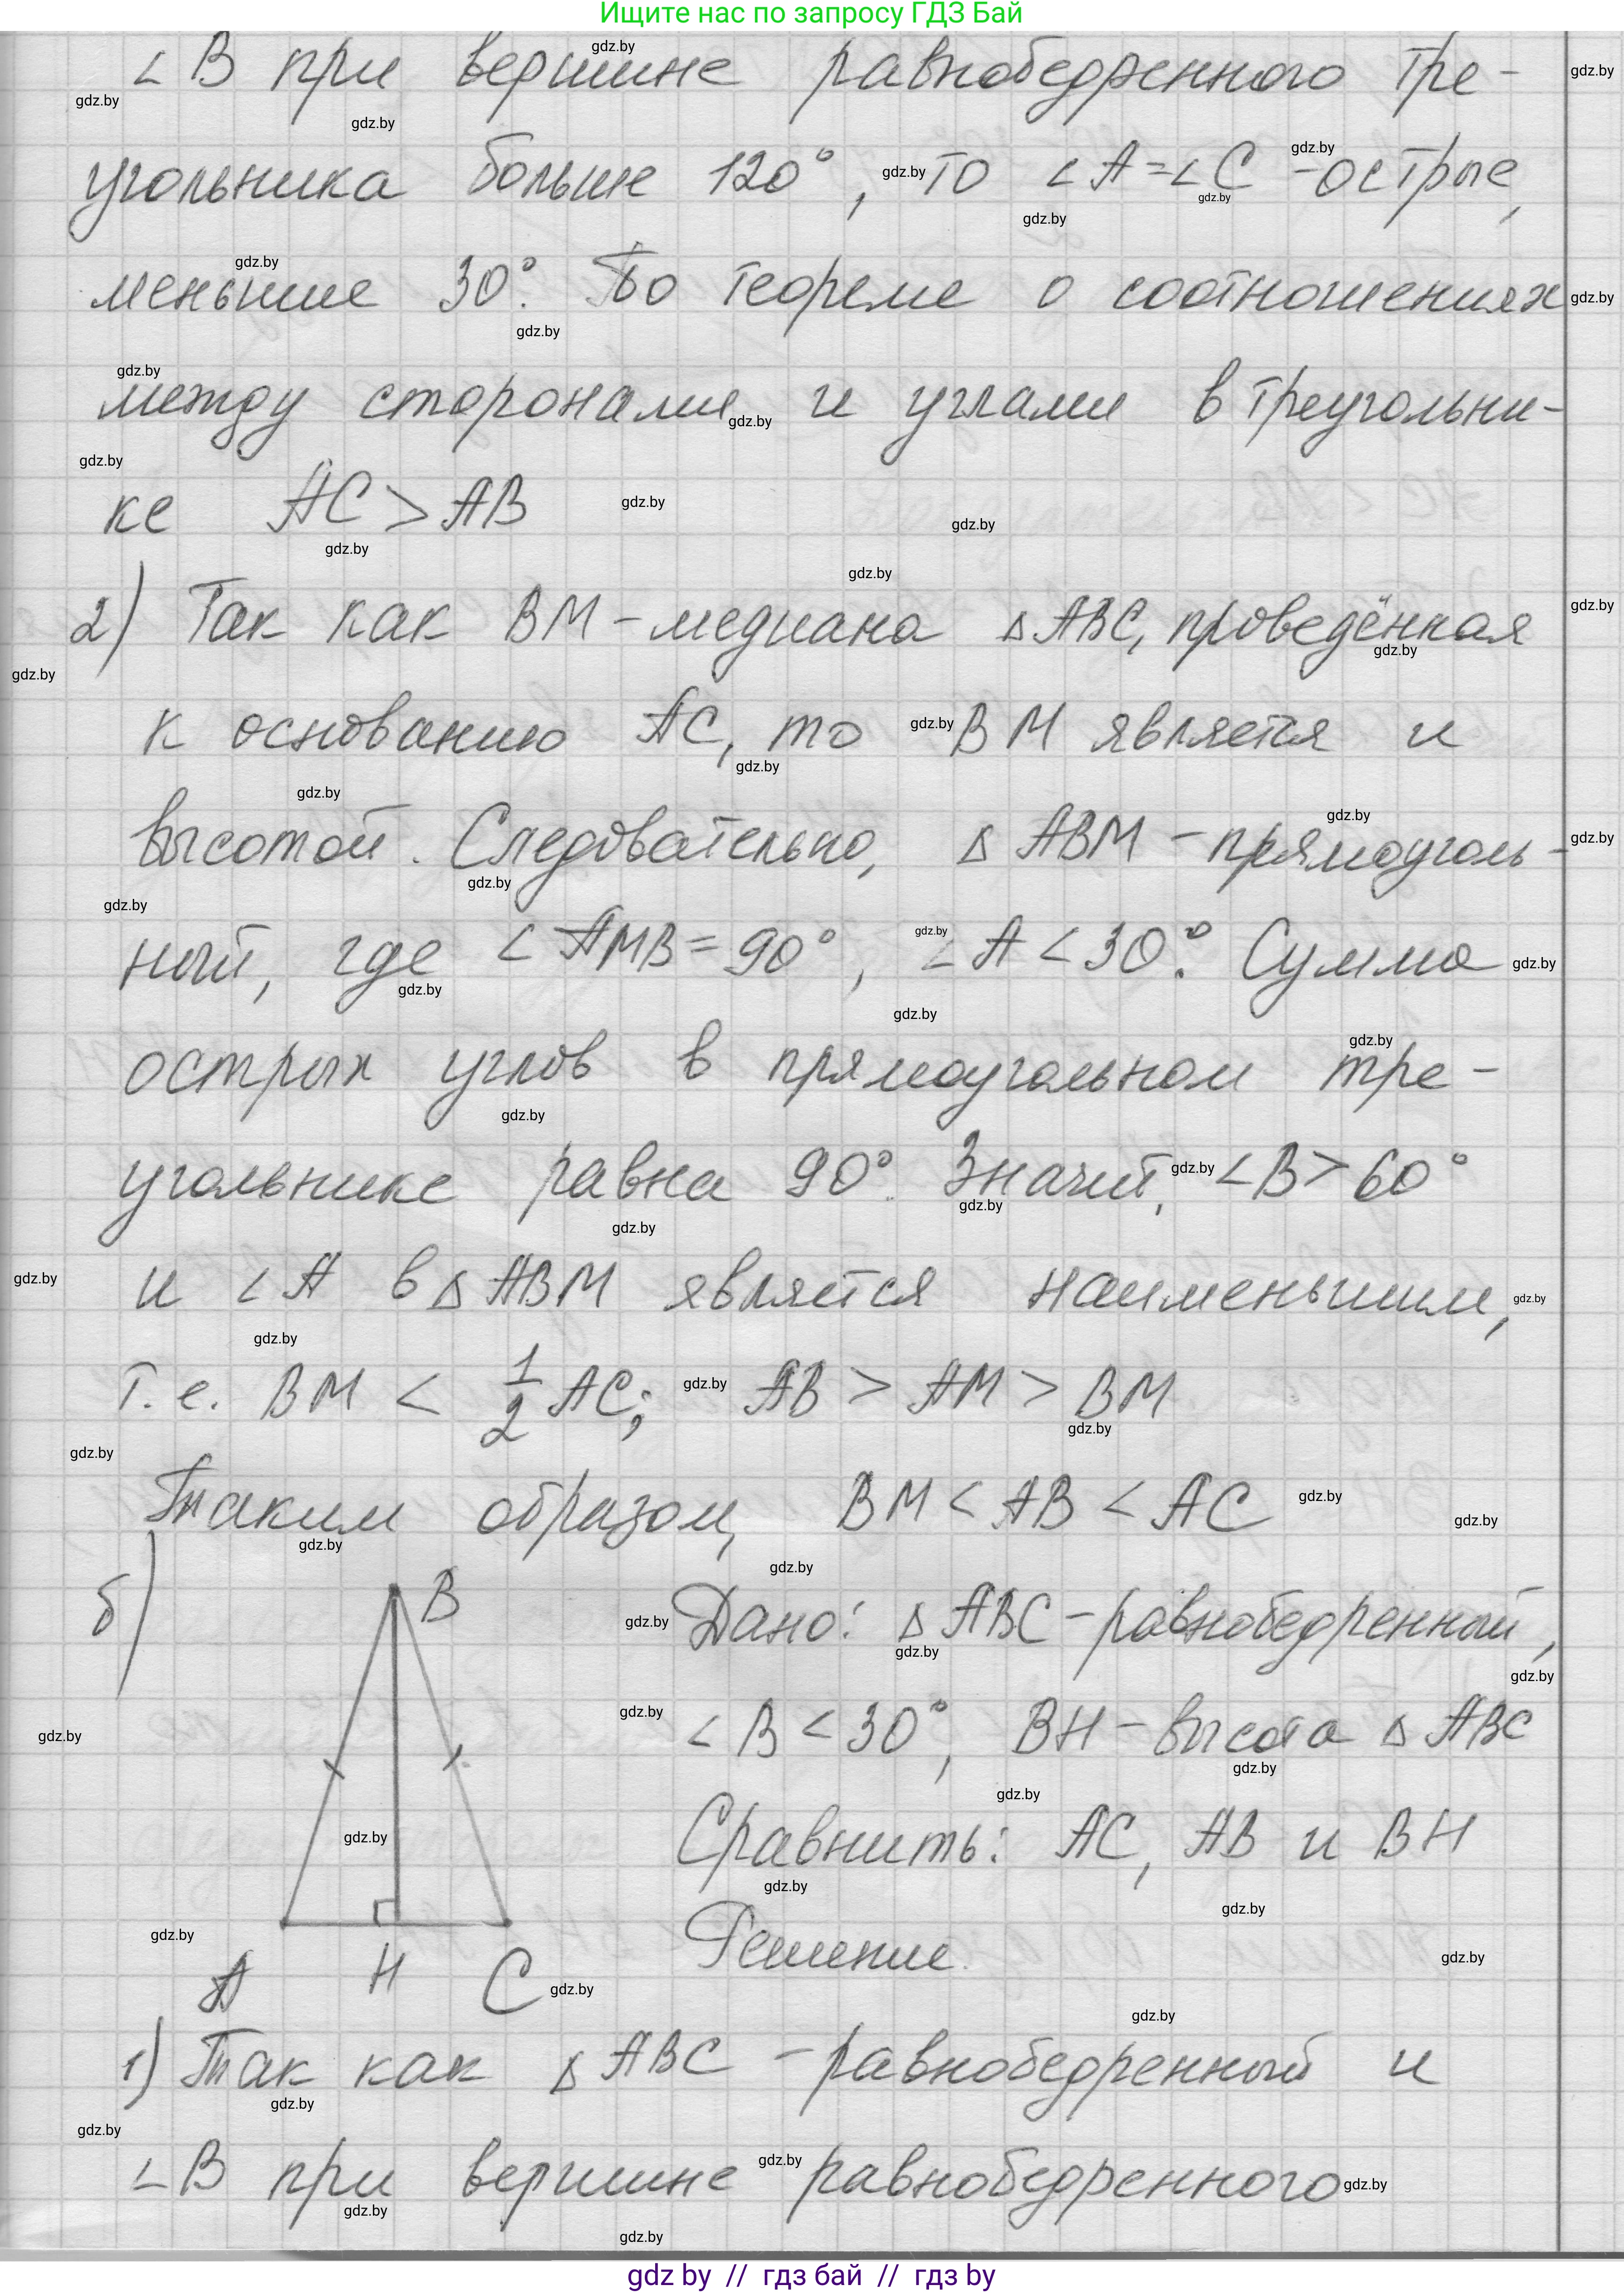 Ищите нас по запросу ГДЗ Бай
∠B при вершине равнобедренного тре-
угольника больше 120°, то ∠A=∠C - острые,
меньшие 30°. По теореме о соотношениях
между сторонами и углами в треугольни-
ке AC > AB
2) Так как BM - медиана △ABC, проведённая
к основанию AC, то BM является и
высотой. Следовательно, △ABM - прямоуголь-
ный, где ∠AMB = 90°, ∠A < 30°. Сумма
острых углов в прямоугольном тре-
угольнике равна 90°. Значит, ∠B > 60°
и ∠A в △ABM является наименьшим,
т.е. BM < 1/2 AC; AB > AM > BM
Таким образом, BM < AB < AC
б)
B
A
H
C
Дано: △ABC - равнобедренный,
∠B < 30°, BH - высота △ABC
Сравнить: AC, AB и BH
Решение.
1) Так как △ABC - равнобедренный и
∠B при вершине равнобедренного
gdz by // гдз бай // гдз by